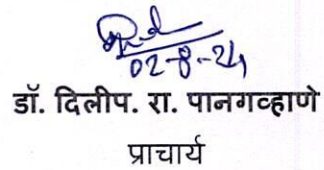 02-8-24
डॉ. दिलीप. रा. पानगव्हाणे
प्राचार्य